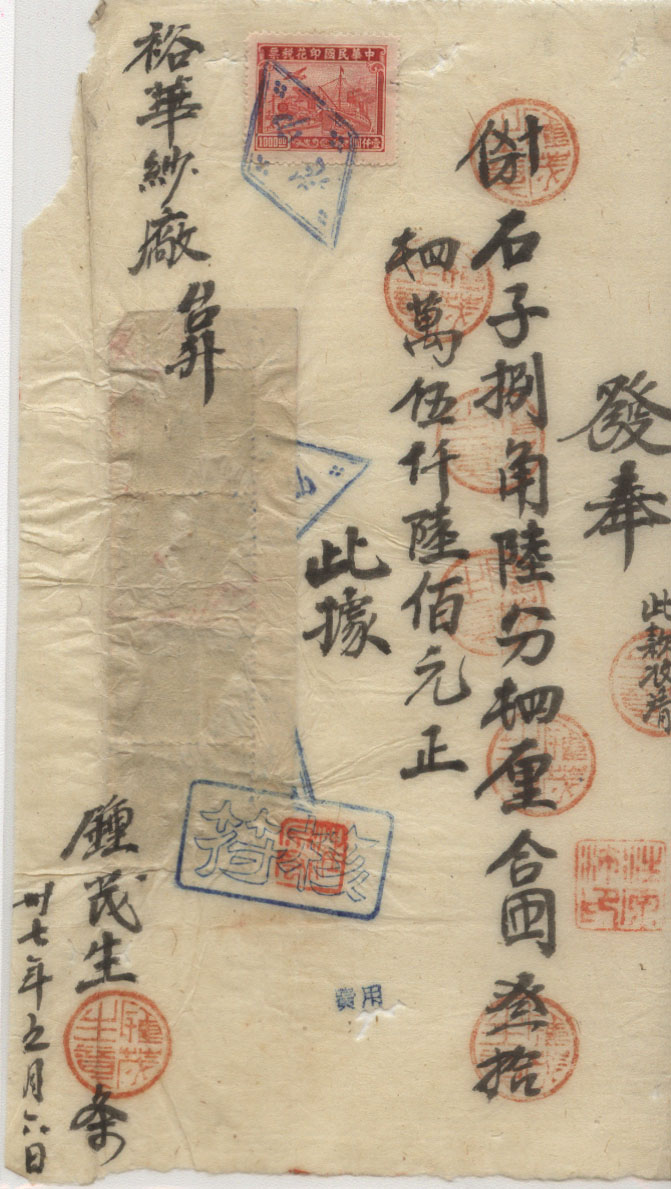 發奉
此款收清
計石子捌角陸分㭍厘合國幣叁拾
㭍萬伍仟陸佰元正
此據
裕華紗廠 台昇
鍾茂生 条
卅七年五月六日
中華民國印花稅票
1000
費用
鍾茂生章